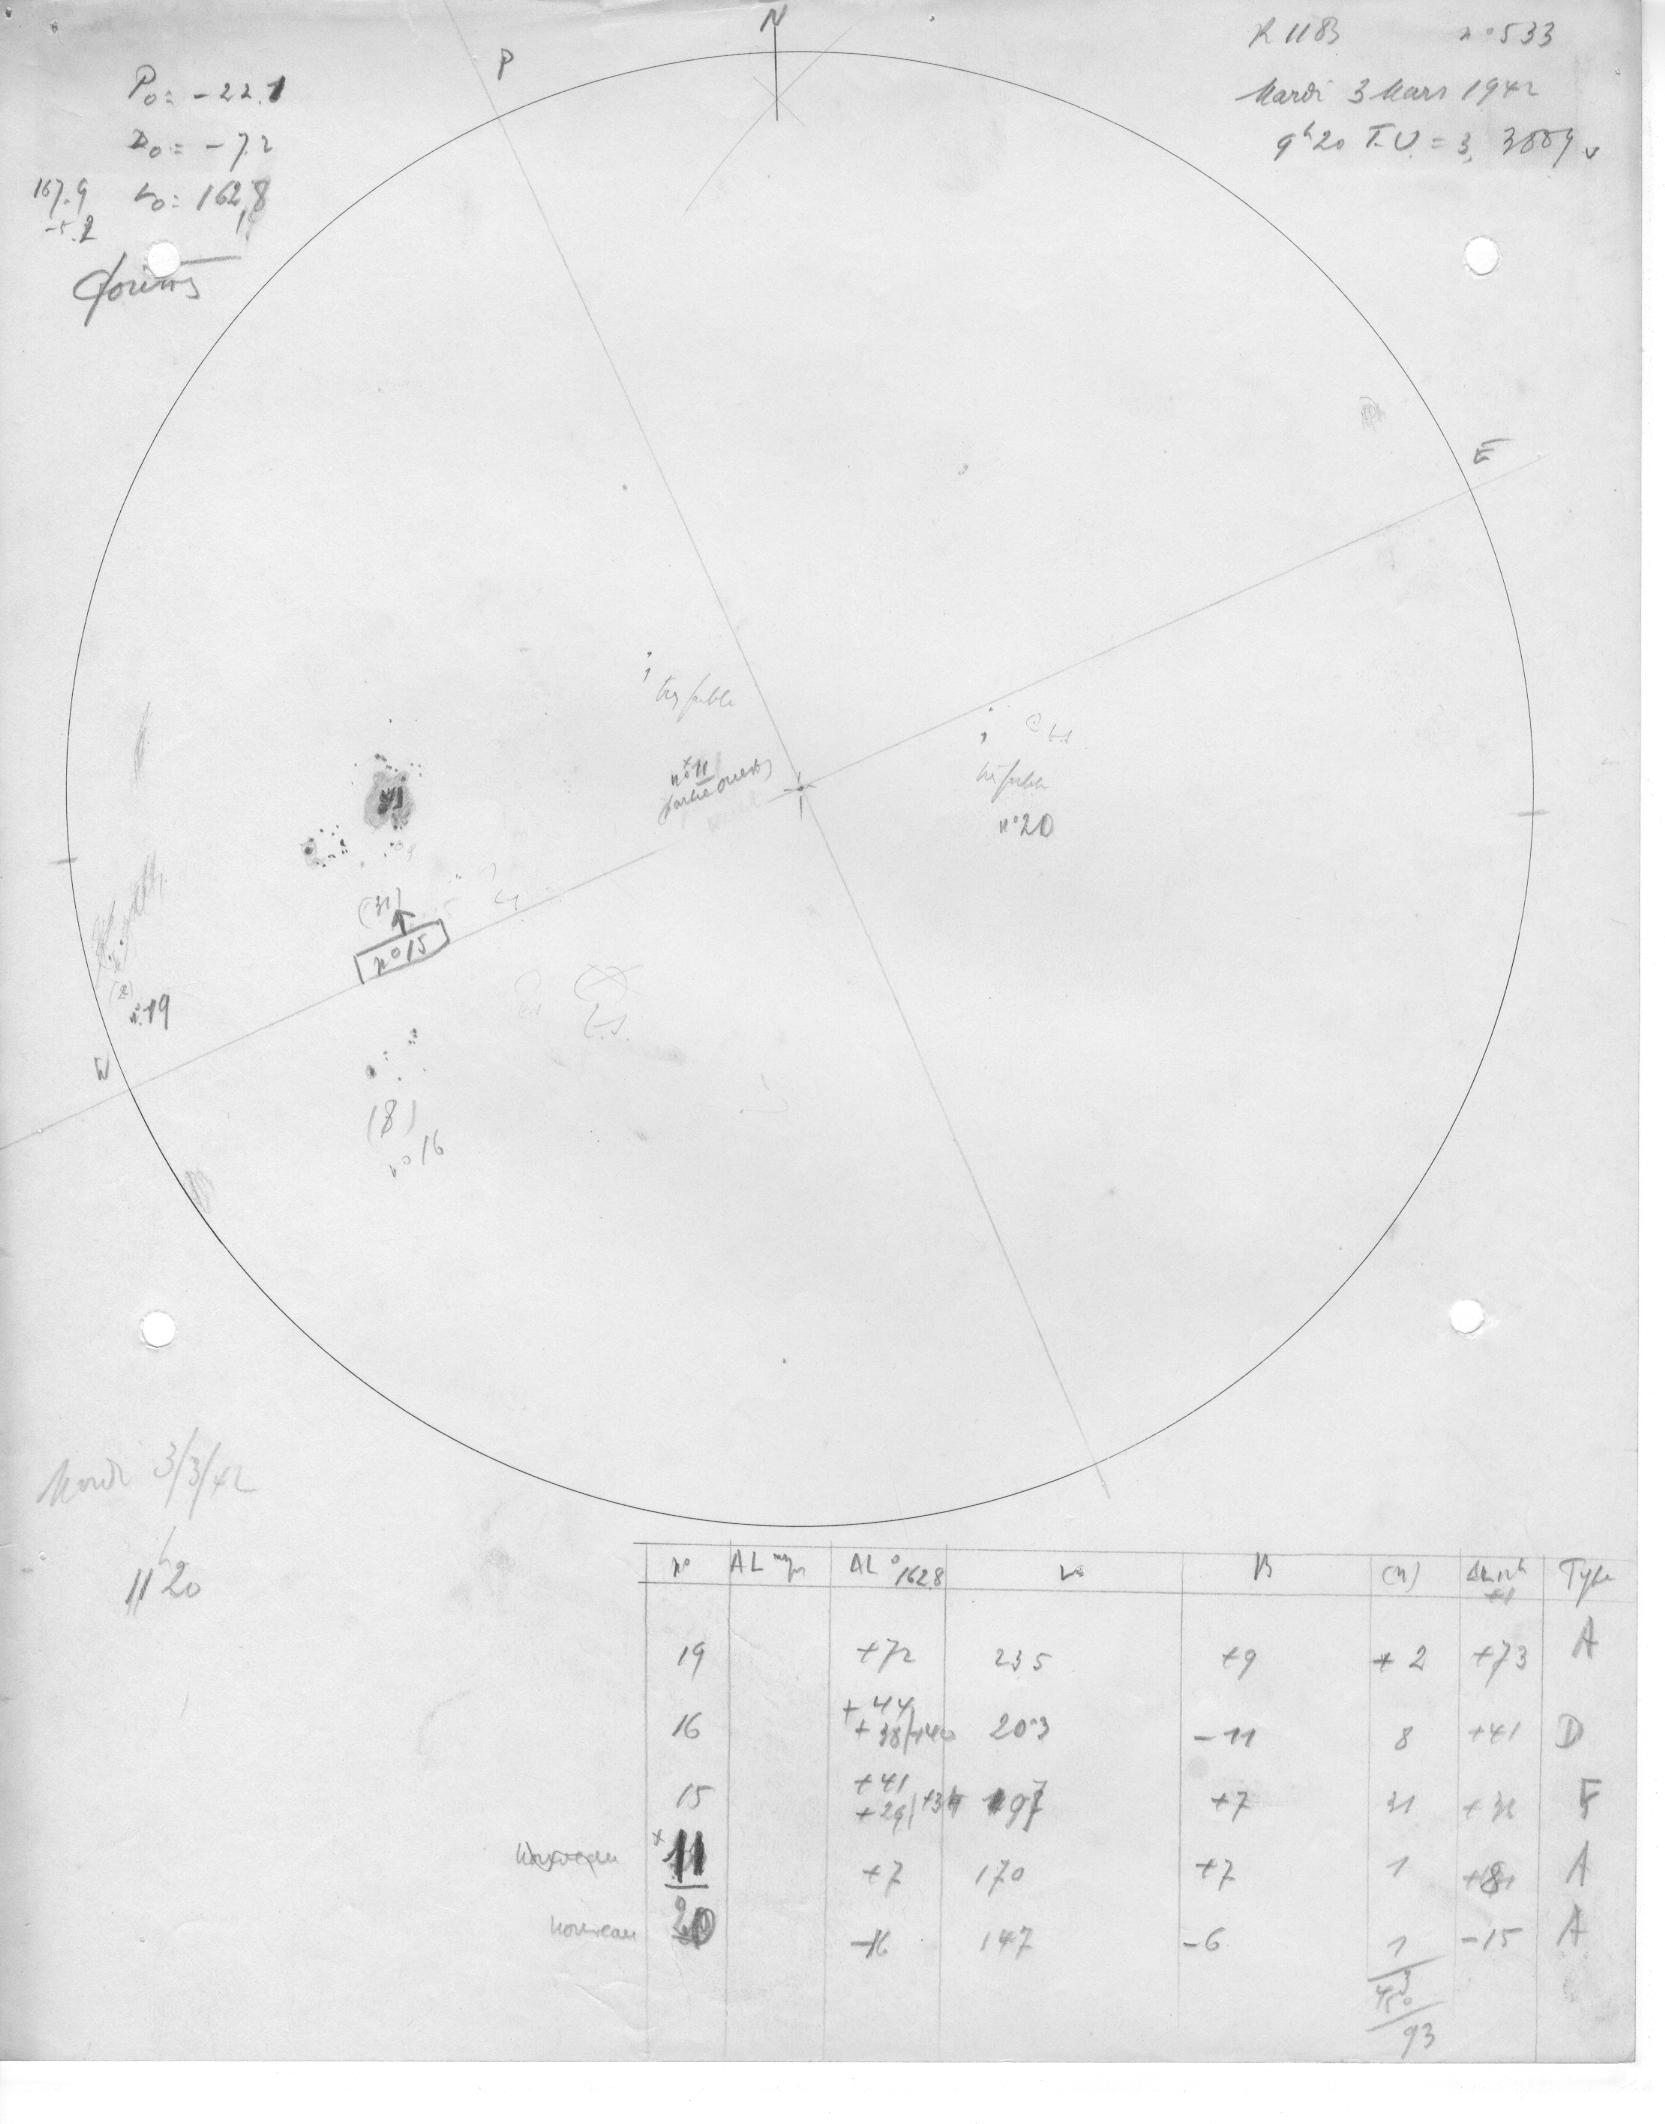 N
P
R 1183 n° 533
Mardi 3 Mars 1942
9h20 T.U. = 3,3889
P0 = -22.1
D0 = -7.2
167.9 L0 = 162,8
-5.2
E
très faible
n° 11
partie ouest
très faible
n° 20
(31)
n° 15
(2)
n° 19
W
(8)
n° 16
t.s.
Mardi 3/3/42
11h20
n° ΔL ΔL° 162.8 L B (n) Type
19 +72 235 +9 2 +73 A
+44
16 +38/+40 203 -11 8 +41 D
+41
15 +29/+34 197 +7 31 F
Nouveau 11 +7 170 +7 1 +8 A
Nouveau 20 -16 147 -6 1 -15 A
43
50
93